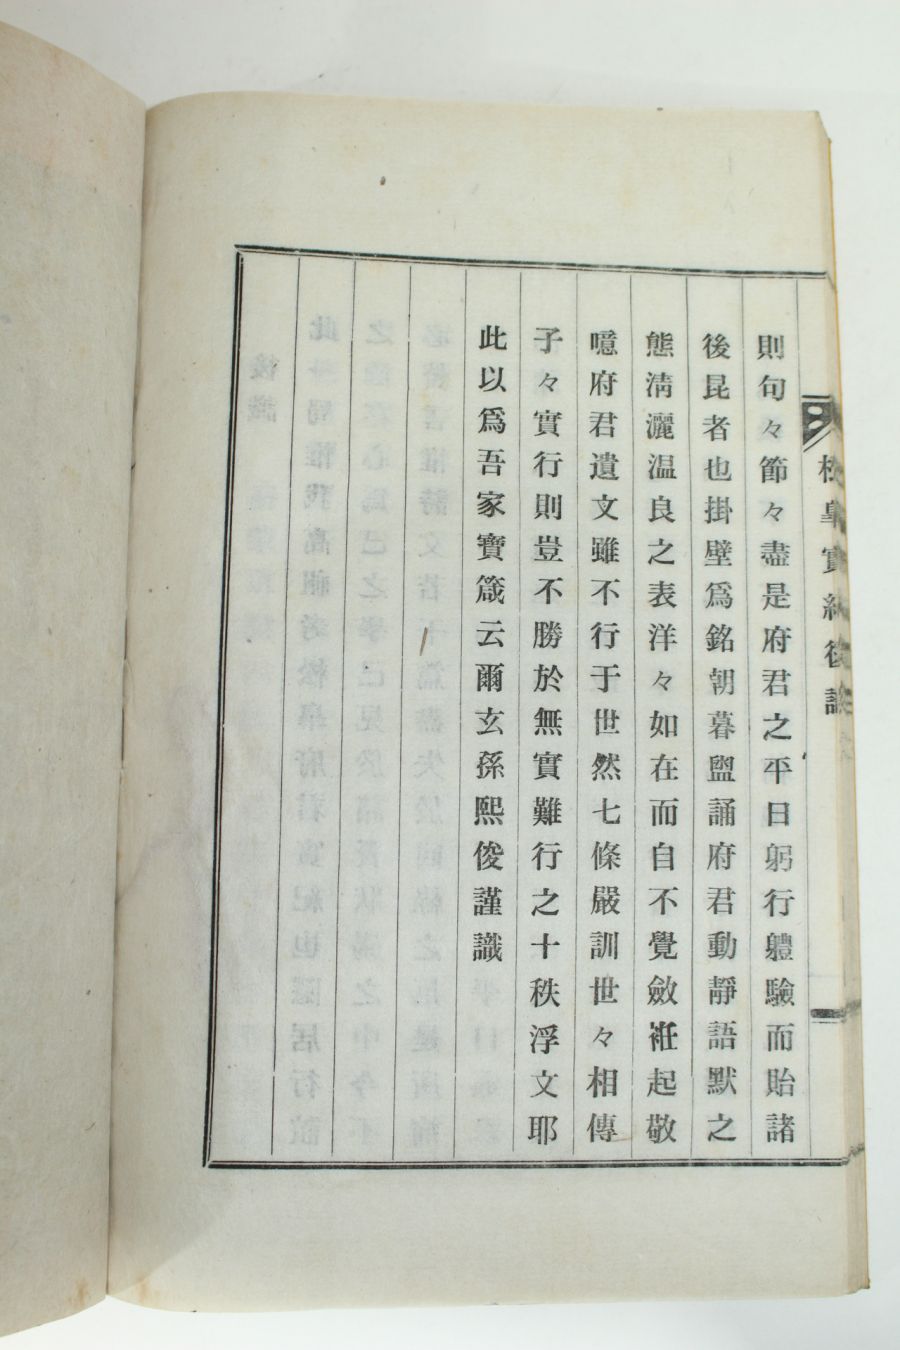 則句々節々盡是府君之平日躬行軆驗而貽諸
後昆者也掛壁爲銘朝暮盥誦府君動靜語默之
態淸灑温良之表洋々如在而自不覺斂袵起敬
噫府君遺文雖不行于世然七條嚴訓世々相傳
子々實行則豈不勝於無實難行之十秩浮文耶
此以爲吾家寶箴云爾玄孫熙俊謹識